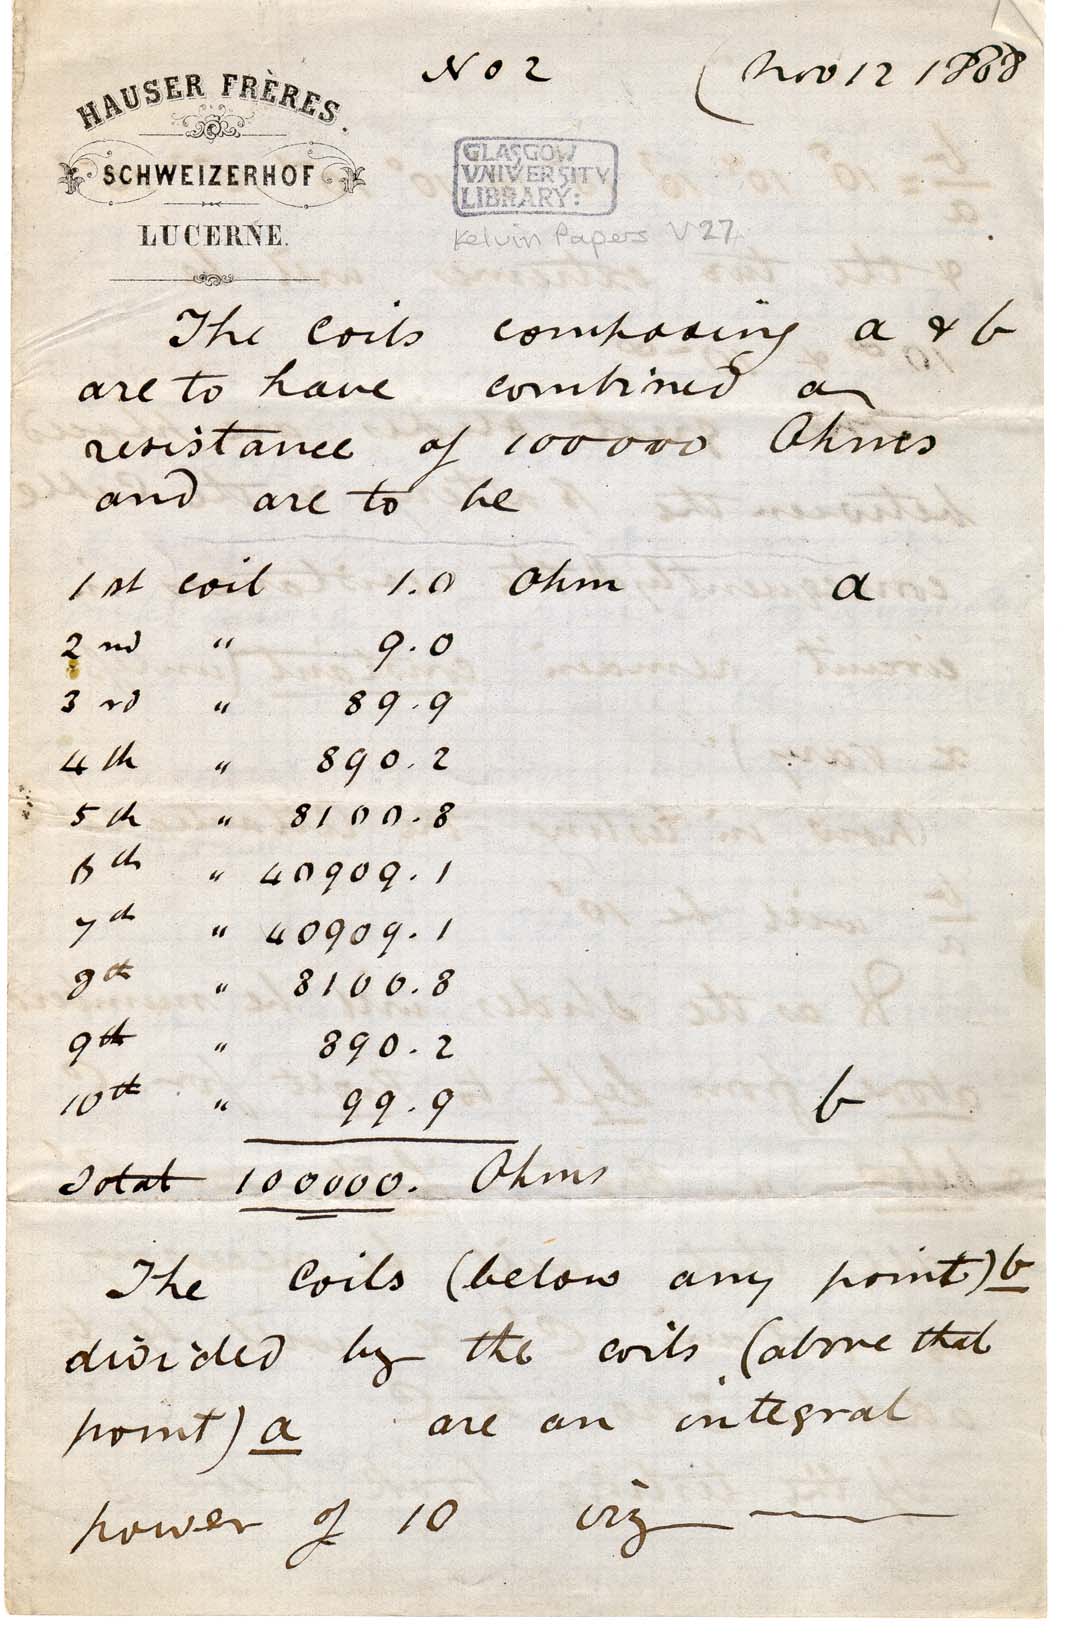 No 2
(Nov 12 1868
HAUSER FRÈRES.
SCHWEIZERHOF
LUCERNE.
GLASGOW
UNIVERSITY
LIBRARY:
Kelvin Papers V27
The Coils composing a & b
are to have combined a
resistance of 100000 Ohms
and are to be
1st coil 1.0 Ohm a
2nd " 9.0
3rd " 89.9
4th " 890.2
5th " 8100.8
6th " 40909.1
7th " 40909.1
8th " 8100.8
9th " 890.2
10th " 99.9 b
Total 100000. Ohms
The Coils (below any point) b
divided by the coils (above that
point) a are an integral
power of 10 viz —